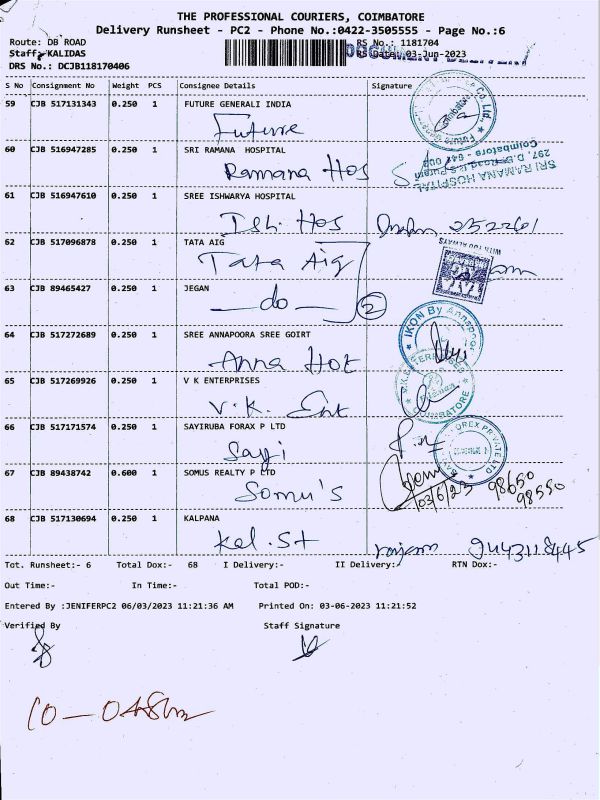 THE PROFESSIONAL COURIERS, COIMBATORE
Delivery Runsheet - PC2 - Phone No.:0422-3505555 - Page No.:6
Route: DB ROAD RS No.: 1181704
Staff: KALIDAS RS Date: 03-Jun-2023
DRS No.: DCJB118170406
S No Consignment No Weight PCS Consignee Details Signature
59 CJB 517131343 0.250 1 FUTURE GENERALI INDIA
Future
60 CJB 516947285 0.250 1 SRI RAMANA HOSPITAL
Ramana Hos
SRI RAMANA HOSPITAL
297, D.B. Road, R.S. Puram
Coimbatore - 641 002
61 CJB 516947610 0.250 1 SREE ISHWARYA HOSPITAL
Ish. Hos 2522601
62 CJB 517096878 0.250 1 TATA AIG
Tata Aig
WITH YOU ALWAYS
63 CJB 89465427 1 JEGAN
do 2
64 CJB 517272689 0.250 1 SREE ANNAPOORA SREE GOIRT
Anna Hot
IKON By Annapoor
65 CJB 517269926 0.250 1 V K ENTERPRISES
V.K. Ent
COIMBATORE
66 CJB 517171574 0.250 1 SAYIRUBA FORAX P LTD
Sayi
OREX PRIVATE LTD
67 CJB 89438742 0.600 1 SOMUS REALTY P LTD
Somu's
03/6/23 98650
98550
68 CJB 517130694 0.250 1 KALPANA
Kal. St rajam 9443118445
Tot. Runsheet:- 6 Total Dox:- 68 I Delivery:- II Delivery:- RTN Dox:-
Out Time:- In Time:- Total POD:-
Entered By :JENIFERPC2 06/03/2023 11:21:36 AM Printed On: 03-06-2023 11:21:52
Verified By Staff Signature